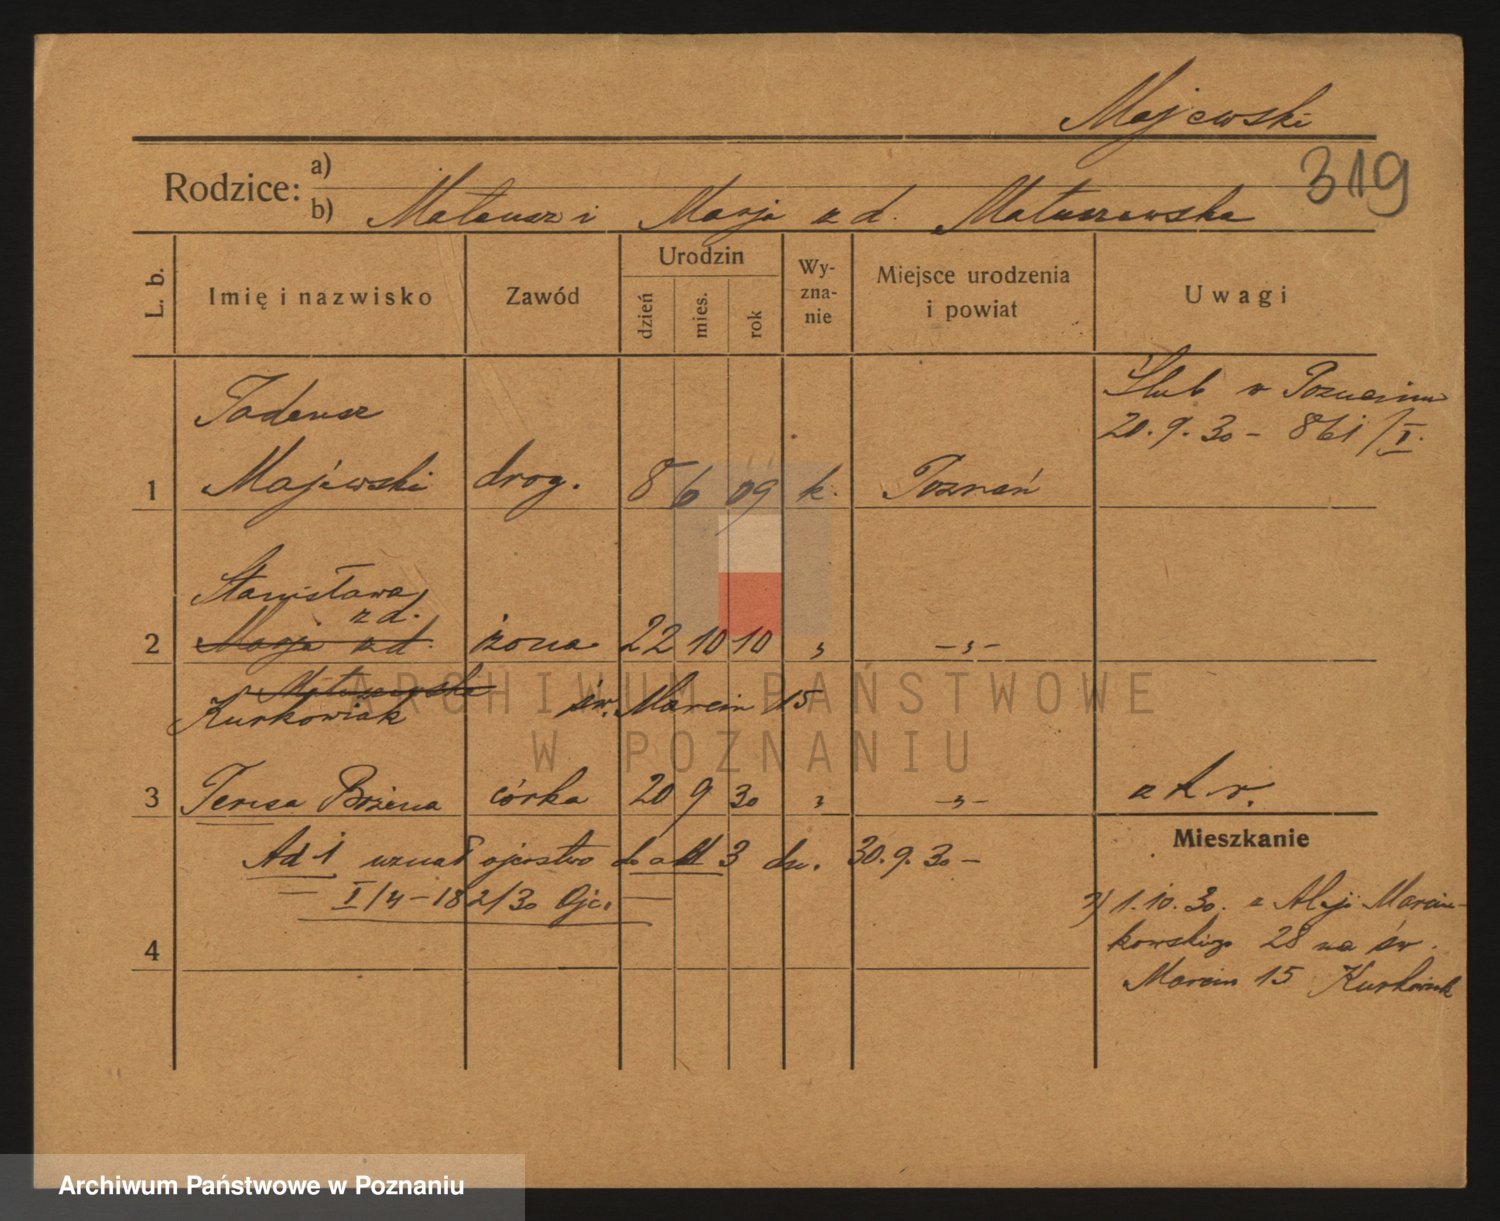 Majewski
319
Rodzice: a)
b) Mateusz i Marja z d. Matuszewska
L. b. Imię i nazwisko Zawód Urodzin dzień mies. rok Wy-zna-nie Miejsce urodzenia i powiat Uwagi
Ślub w Poznaniu
20. 9. 30 – 861/I.
Tadeusz
1 Majewski drog. 8 6 09 k. Poznań
Stanisława
z d.
2 Marja z d. żona 22 10 10 " – " –
Matuszewska
Kurkowiak św. Marcin 15
3 Teresa Bożena córka 20 9 30 " – " – z t. r.
Ad 1 uznał ojcostwo do akt 3 dn. 30. 9. 30 –
I/4 – 182/30 Ojc.
Mieszkanie
1. 10. 30. z Alej Marcin-
kowskiego 28 na św.
Marcin 15 Kurkowiak
4
ARCHIWUM PAŃSTWOWE
W POZNANIU
Archiwum Państwowe w Poznaniu